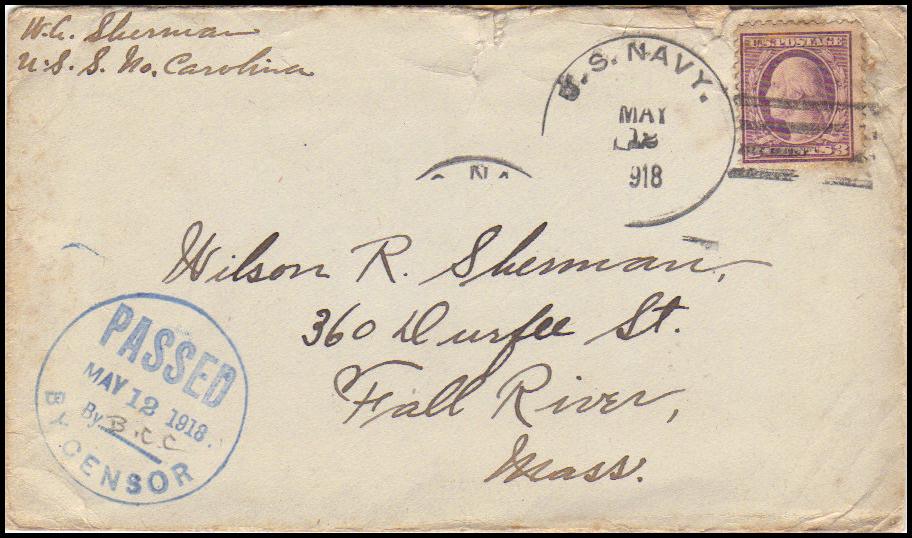 W. C. Sherman
U. S. S. No. Carolina
U.S. NAVY.
MAY
12
918
U.S. POSTAGE
3
NA
Wilson R. Sherman,
360 Durfee St.
Fall River,
Mass.
PASSED
MAY 12 1918.
By B.C.C
BY CENSOR